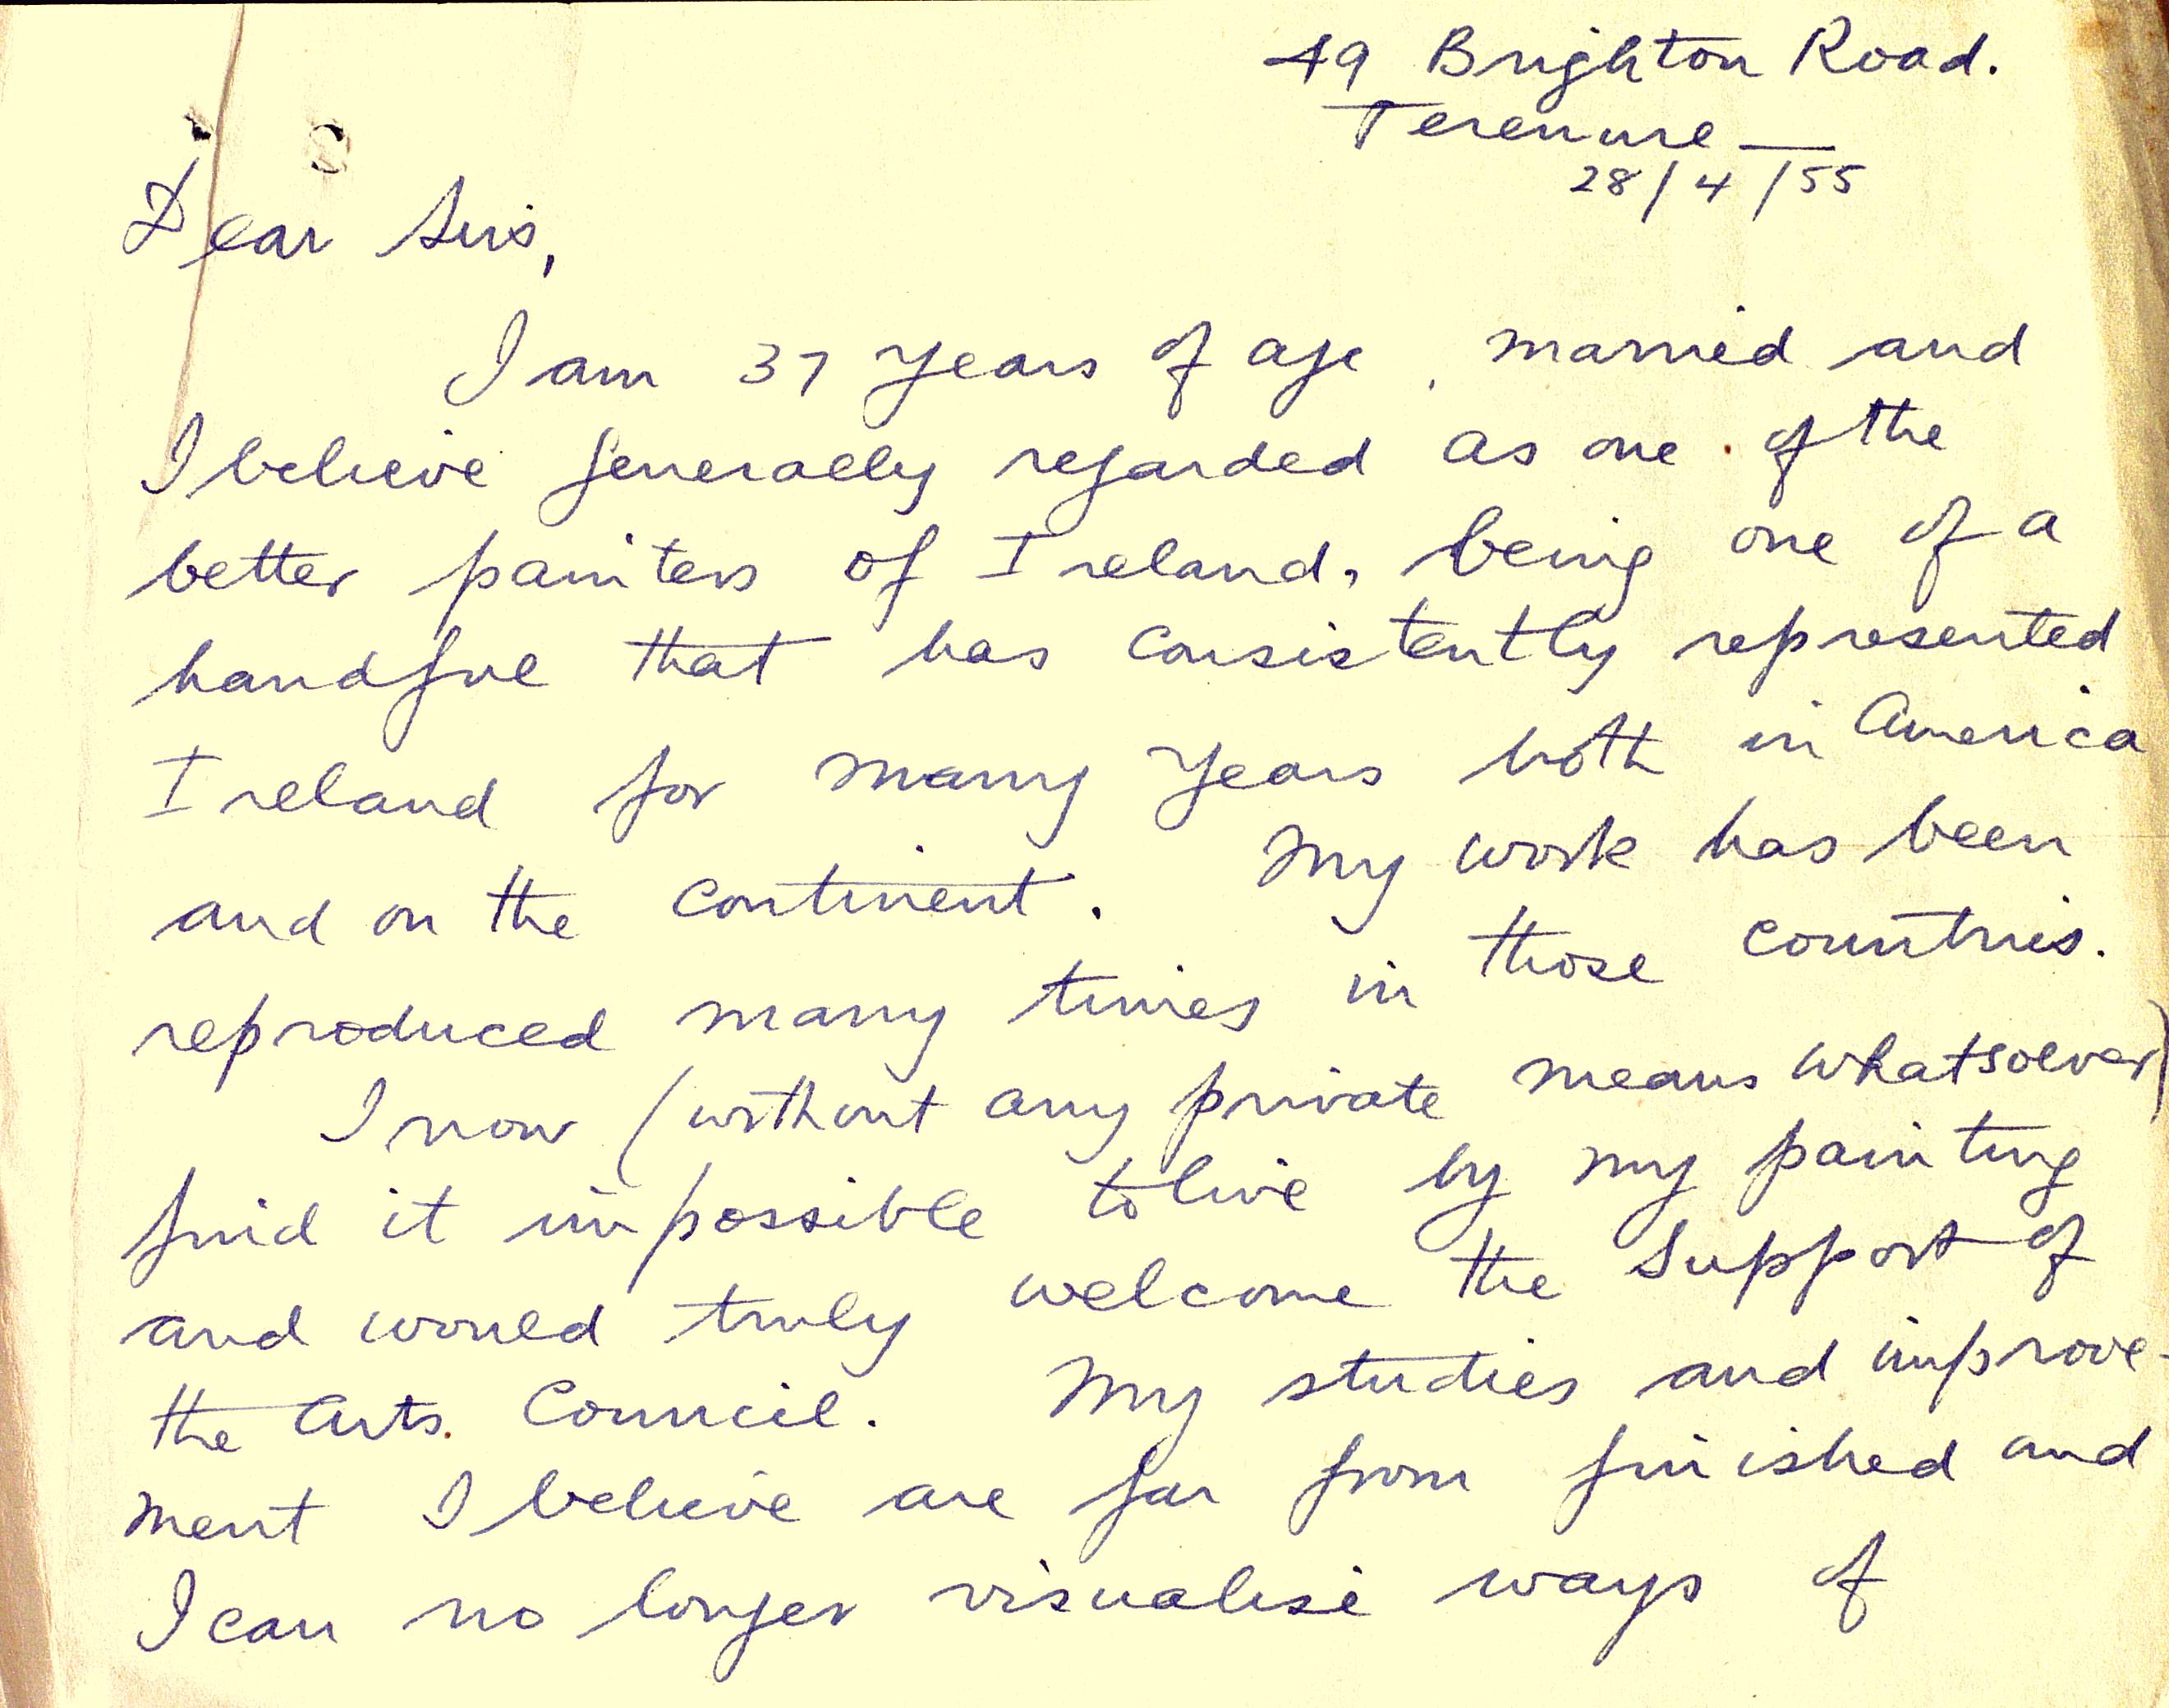 49 Brighton Road.
Terenure
28/4/55
Dear Sirs,
I am 37 years of age, married and
I believe generally regarded as one of the
better painters of Ireland, being one of a
handful that has consistently represented
Ireland for many years both in America
and on the continent. My work has been
reproduced many times in those countries.
I now (without any private means whatsoever)
find it impossible to live by my painting
and would truly welcome the support of
the Arts Council. My studies and improve-
ment I believe are far from finished and
I can no longer visualise ways of